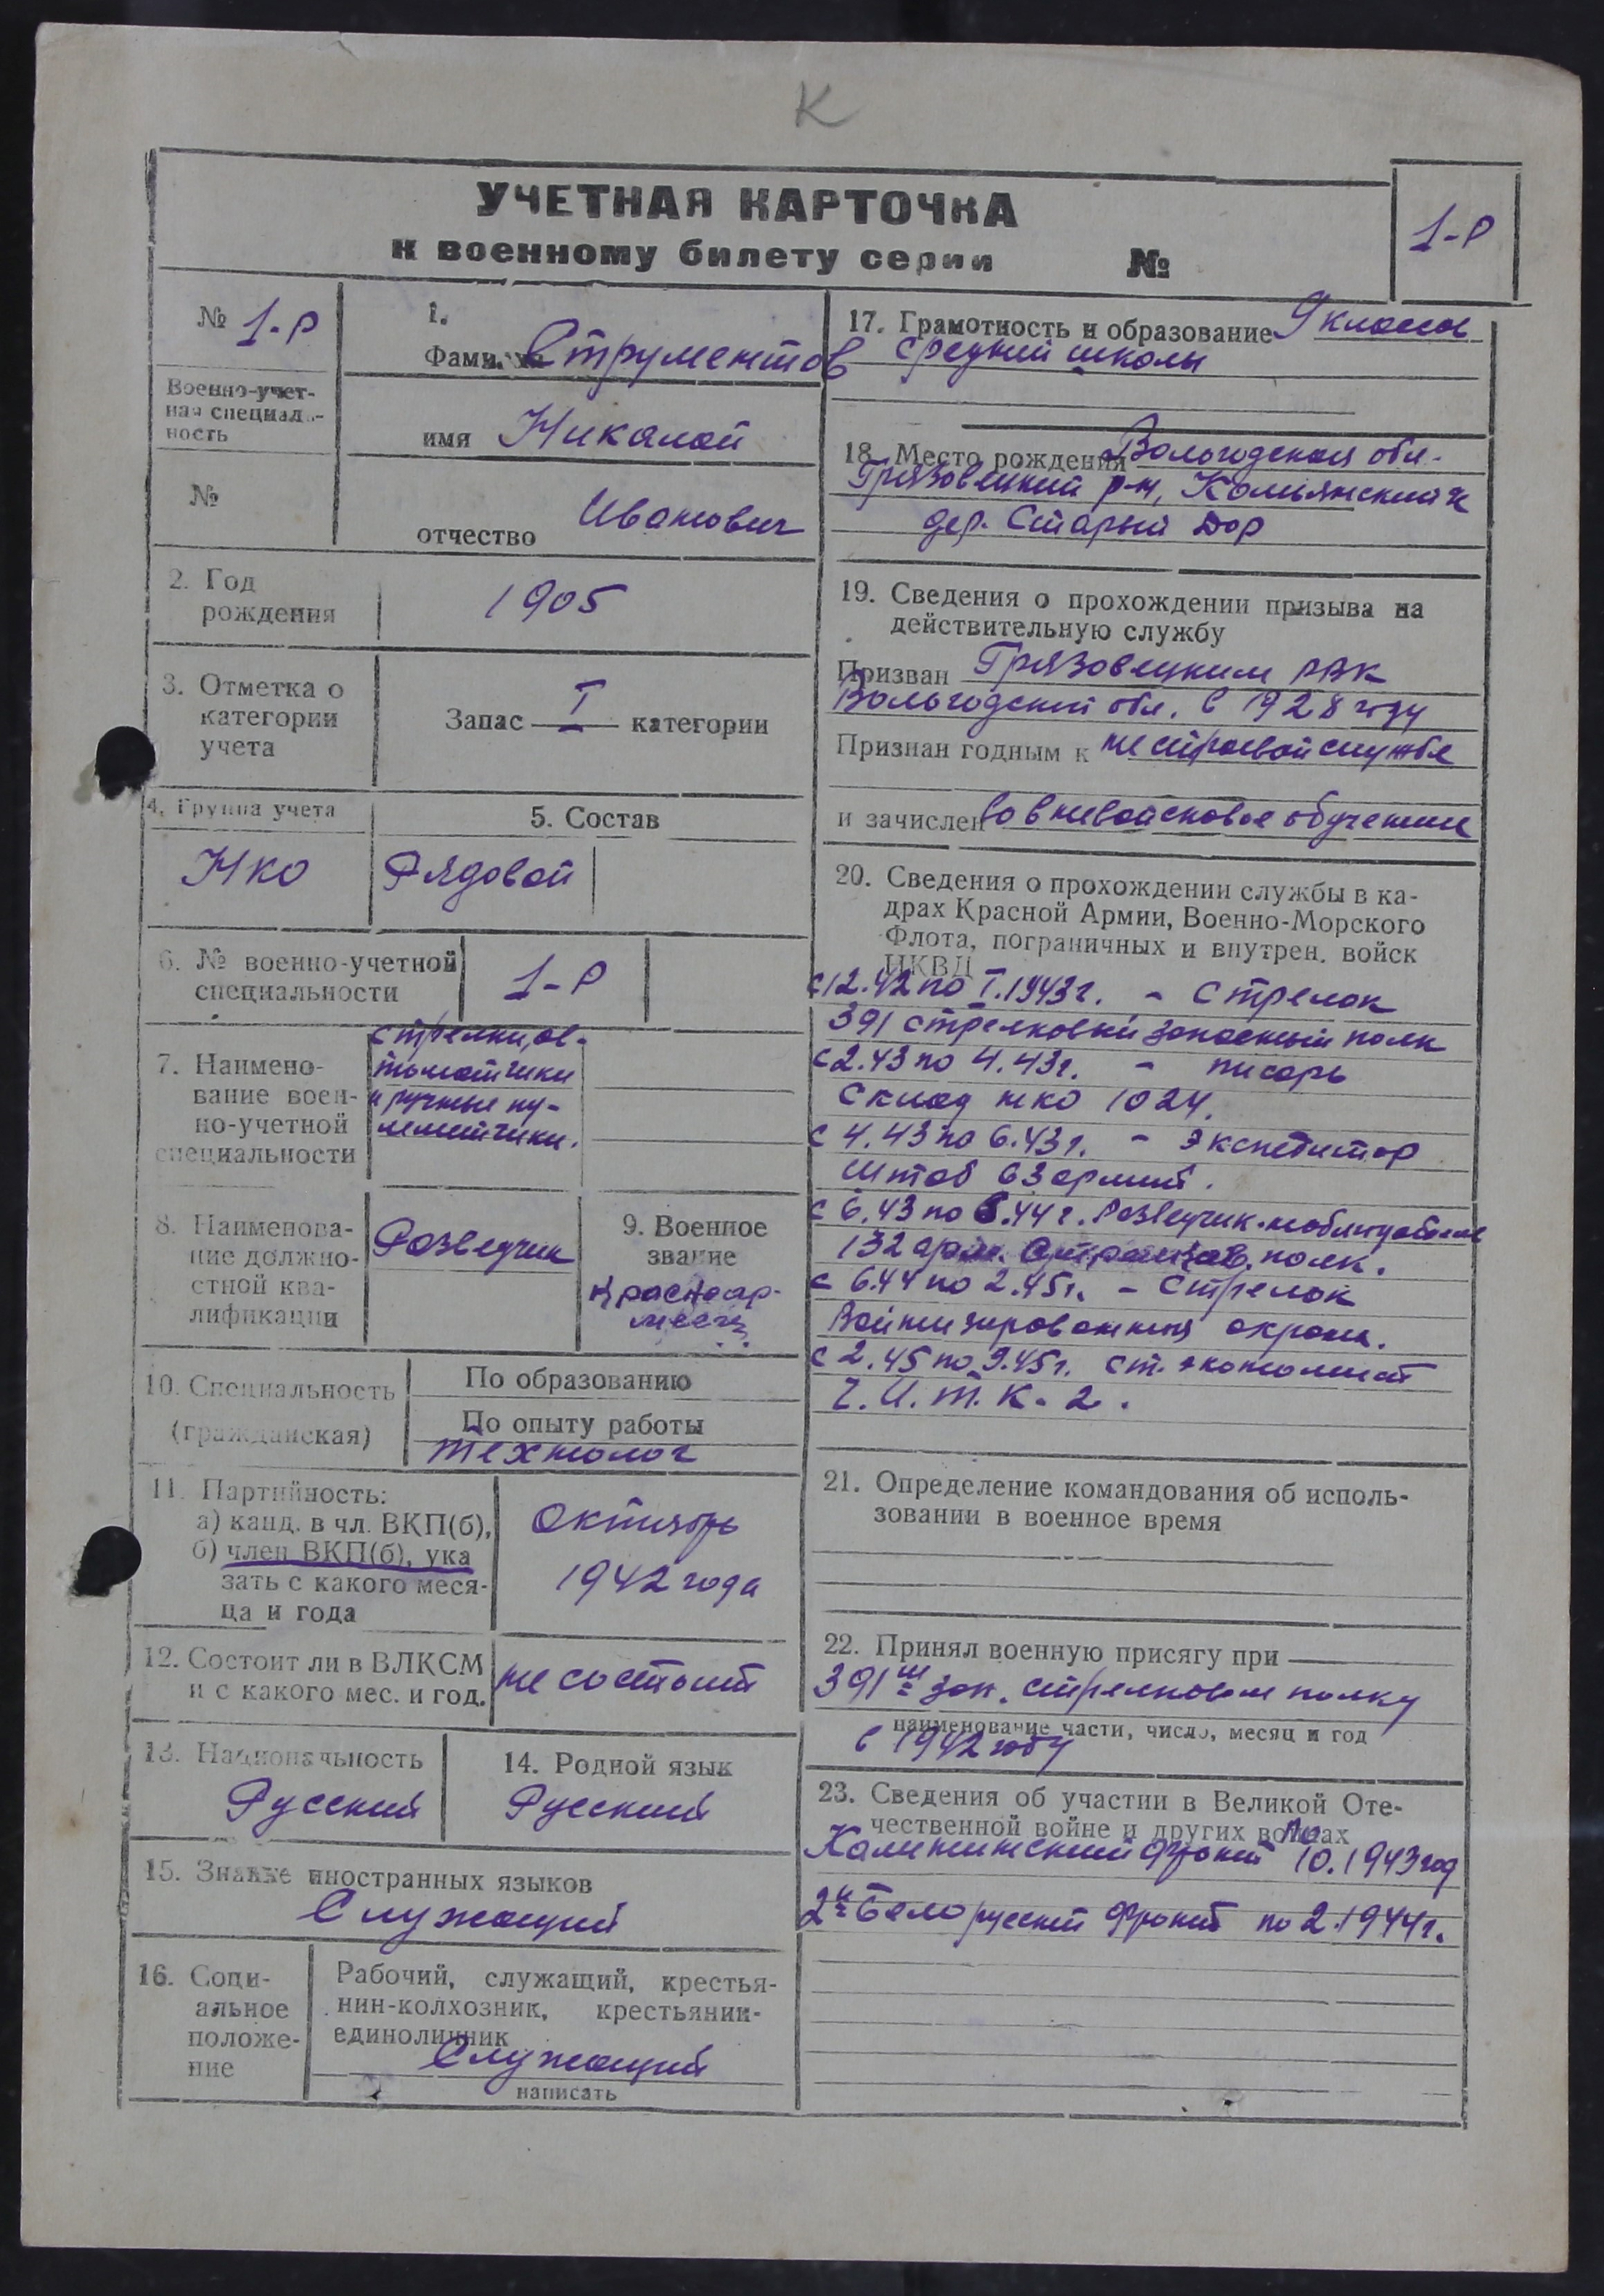 К
УЧЕТНАЯ КАРТОЧКА
к военному билету серии №
1-Р
№ 1-Р
Военно-учет-
ная специаль-
ность
№
1.
Фамилия Струментов
имя Николай
отчество Иванович
2. Год
рождения
1905
3. Отметка о
категории
учета
Запас I категории
4. Группа учета
НКО
5. Состав
Рядовой
6. № военно-учетной
специальности
1-Р
7. Наимено-
вание воен-
но-учетной
специальности
стрелки, ав-
томатчики
и ручные пу-
леметчики.
8. Наименова-
ние должно-
стной ква-
лификации
Разведчик
9. Военное
звание
Красноар-
меец
10. Специальность
(гражданская)
По образованию
По опыту работы
технолог
11. Партийность:
а) канд. в чл. ВКП(б),
б) член ВКП(б), ука
зать с какого меся-
ца и года
Октябрь
1942 года
12. Состоит ли в ВЛКСМ
и с какого мес. и год.
не состоит
13. Национальность
Русский
14. Родной язык
Русский
15. Знание иностранных языков
Служащий
16. Соци-
альное
положе-
ние
Рабочий, служащий, крестья-
нин-колхозник, крестьянин-
единоличник
Служащий
написать
17. Грамотность и образование 9 классов
средний школы
18. Место рождения Вологодская обл.
Грязовецкий р-н,
дер. Старый Дор
19. Сведения о прохождении призыва на
действительную службу
Призван Грязовецким РВК
Вологодский обл. в 1928 году
Признан годным к не строевой службе
и зачислен во вневойсковое обучение
20. Сведения о прохождении службы в ка-
драх Красной Армии, Военно-Морского
Флота, пограничных и внутрен. войск
НКВД
с 12.42 по I.1943 г. - Стрелок
391 стрелковый запасный полк
с 2.43 по 4.43 г. - писарь
Склад нко 1024.
с 4.43 по 6.43 г. - экспедитор
Штаб 63 армий.
с 6.43 по 6.44 г. Разведчик
132 полк.
с 6.44 по 2.45 г. - Стрелок
Военизированная охрана.
с 2.45 по 9.45 г. ст. экономист
И.Т.К. - 2.
21. Определение командования об исполь-
зовании в военное время
22. Принял военную присягу при
391 м зап. стрелковом полку
наименование части, число, месяц и год
в 1942 году
23. Сведения об участии в Великой Оте-
чественной войне и других войнах
Калининский фронт по 10.1943 год
2й Белорусский фронт по 2.1944 г.